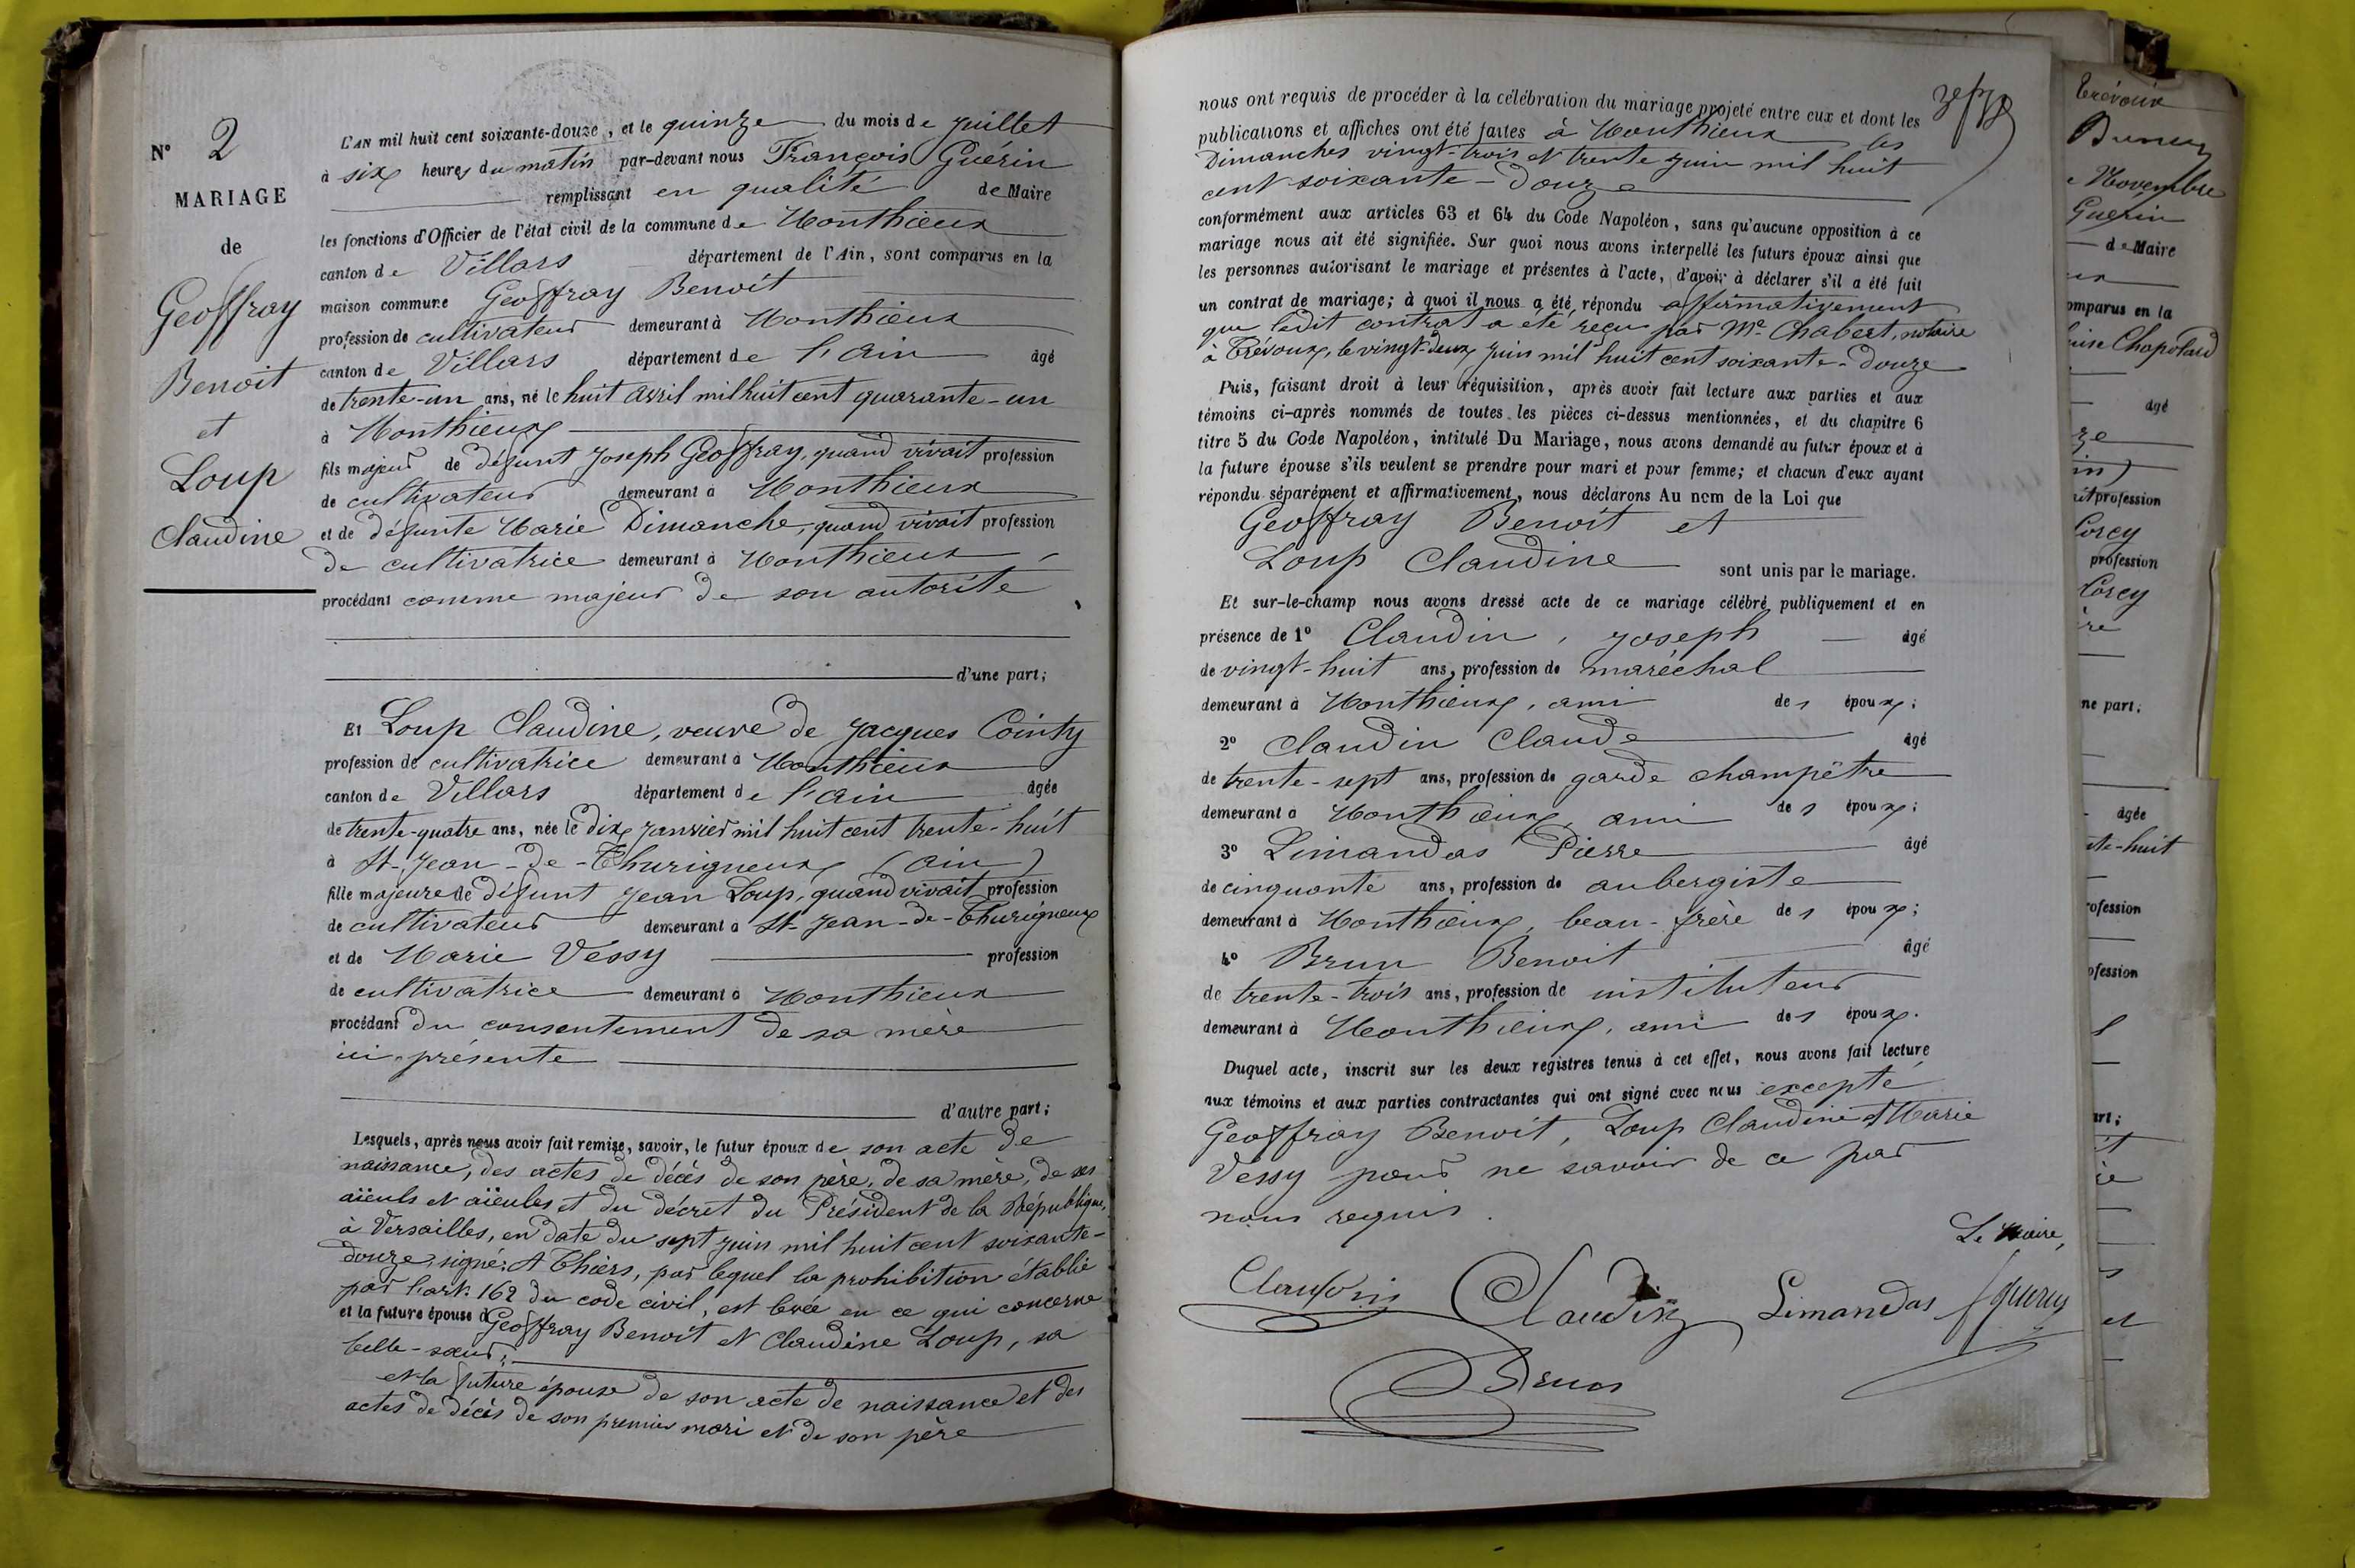 N° 2
MARIAGE
de
Geoffray
Benoit
et
Loup
Claudine
L'AN mil huit cent soixante-douze, et le quinze du mois de juillet
à six heures du matin par-devant nous François Guérin
remplissant en qualité de Maire
les fonctions d'Officier de l'état civil de la commune de Monthieux
canton de Villars département de l'Ain, sont comparus en la
maison commune Geoffray Benoit
profession de cultivateur demeurant à Monthieux
canton de Villars département de l'Ain âgé
de trente-un ans, né le huit avril mil huit cent quarante-un
à Monthieux
fils majeur de défunt Joseph Geoffray, quand vivait profession
de cultivateur demeurant à Monthieux
et de défunte Marie Dimanche, quand vivait profession
de cultivatrice demeurant à Monthieux,
procédant comme majeur de son autorité
d'une part;
Et Loup Claudine, veuve de Jacques Cointy
profession de cultivatrice demeurant à Monthieux
canton de Villars département de l'Ain âgée
de trente-quatre ans, née le dix janvier mil huit cent trente-huit
à St-Jean-de-Thurigneux (Ain)
fille majeure de défunt Jean Loup, quand vivait profession
de cultivateur demeurant à St-Jean-de-Thurigneux
et de Marie Vessy profession
de cultivatrice demeurant à Monthieux
procédant du consentement de sa mère
ici présente
d'autre part;
Lesquels, après nous avoir fait remise, savoir, le futur époux de son acte de
naissance, des actes de décès de son père, de sa mère, de ses
aïeuls et aïeules et du décret du Président de la République,
à Versailles, en date du sept juin mil huit cent soixante-
douze, signé: A Thiers, par lequel la prohibition établie
par l'art. 162 du code civil, est levée en ce qui concerne
et la future épouse d Geoffray Benoit et Claudine Loup, sa
belle-sœur;
et la future épouse de son acte de naissance et des
actes de décès de son premier mari et de son père
nous ont requis de procéder à la célébration du mariage projeté entre eux et dont les
publications et affiches ont été faites à Monthieux les
Dimanches vingt-trois et trente juin mil huit
cent soixante-douze
conformément aux articles 63 et 64 du Code Napoléon, sans qu'aucune opposition à ce
mariage nous ait été signifiée. Sur quoi nous avons interpellé les futurs époux ainsi que
les personnes autorisant le mariage et présentes à l'acte, d'avoir à déclarer s'il a été fait
un contrat de mariage; à quoi il nous a été répondu affirmativement
que ledit contrat a été reçu par Me Chabert, notaire
à Trévoux, le vingt-deux juin mil huit cent soixante-douze
Puis, faisant droit à leur réquisition, après avoir fait lecture aux parties et aux
témoins ci-après nommés de toutes les pièces ci-dessus mentionnées, et du chapitre 6
titre 5 du Code Napoléon, intitulé Du Mariage, nous avons demandé au futur époux et à
la future épouse s'ils veulent se prendre pour mari et pour femme; et chacun d'eux ayant
répondu séparément et affirmativement, nous déclarons Au nom de la Loi que
Geoffray Benoit et
Loup Claudine sont unis par le mariage.
Et sur-le-champ nous avons dressé acte de ce mariage célébré publiquement et en
présence de 1° Claudin, Joseph âgé
de vingt-huit ans, profession de maréchal
demeurant à Monthieux, ami des époux;
2° Claudin Claude âgé
de trente-sept ans, profession de garde champêtre
demeurant à Monthieux, ami des époux;
3° Limandas Pierre âgé
de cinquante ans, profession de aubergiste
demeurant à Monthieux, beau-frère des époux;
4° Brun Benoit âgé
de trente-trois ans, profession de instituteur
demeurant à Monthieux, ami des époux.
Duquel acte, inscrit sur les deux registres tenus à cet effet, nous avons fait lecture
aux témoins et aux parties contractantes qui ont signé avec nous excepté
Geoffray Benoit, Loup Claudine et Marie
Vessy pour ne savoir de ce par
nous requis.
Le Maire,
Claudin Claudin Limandas f guerin
Brun
Trévoux
Novembre
Guerin
de Maire
omparus en la
âgé
profession
Corcy
profession
Corcy
ne part;
âgée
te-huit
ofession
ofession
art;
et